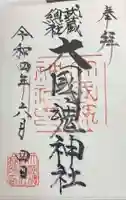 奉拝
武蔵
総社
大國魂神社
令和四年六月四日